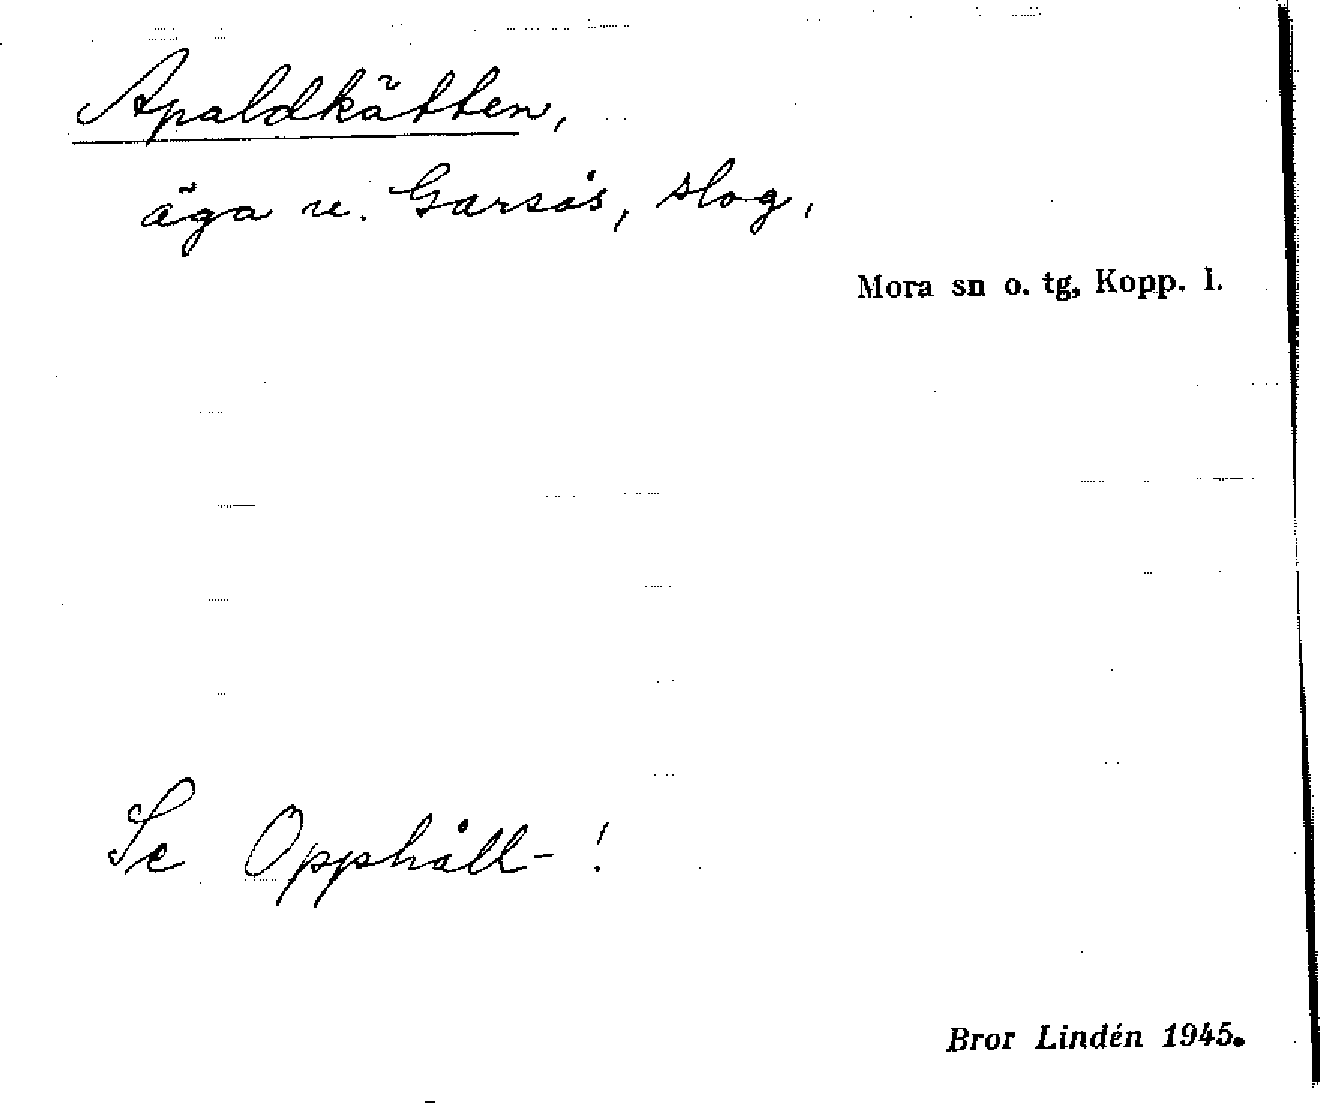 Apaldkätten,
äga v. Garsås, slog,
Mora sn o. tg, Kopp. l.
Se Opphåll- !
Bror Lindén 1945.